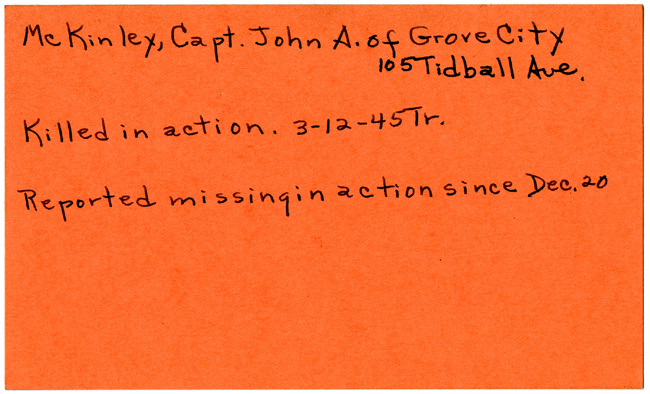 McKinley, Capt. John A. of Grove City
105 Tidball Ave.
Killed in action. 3-12-45 Tr.
Reported missing in action since Dec. 20